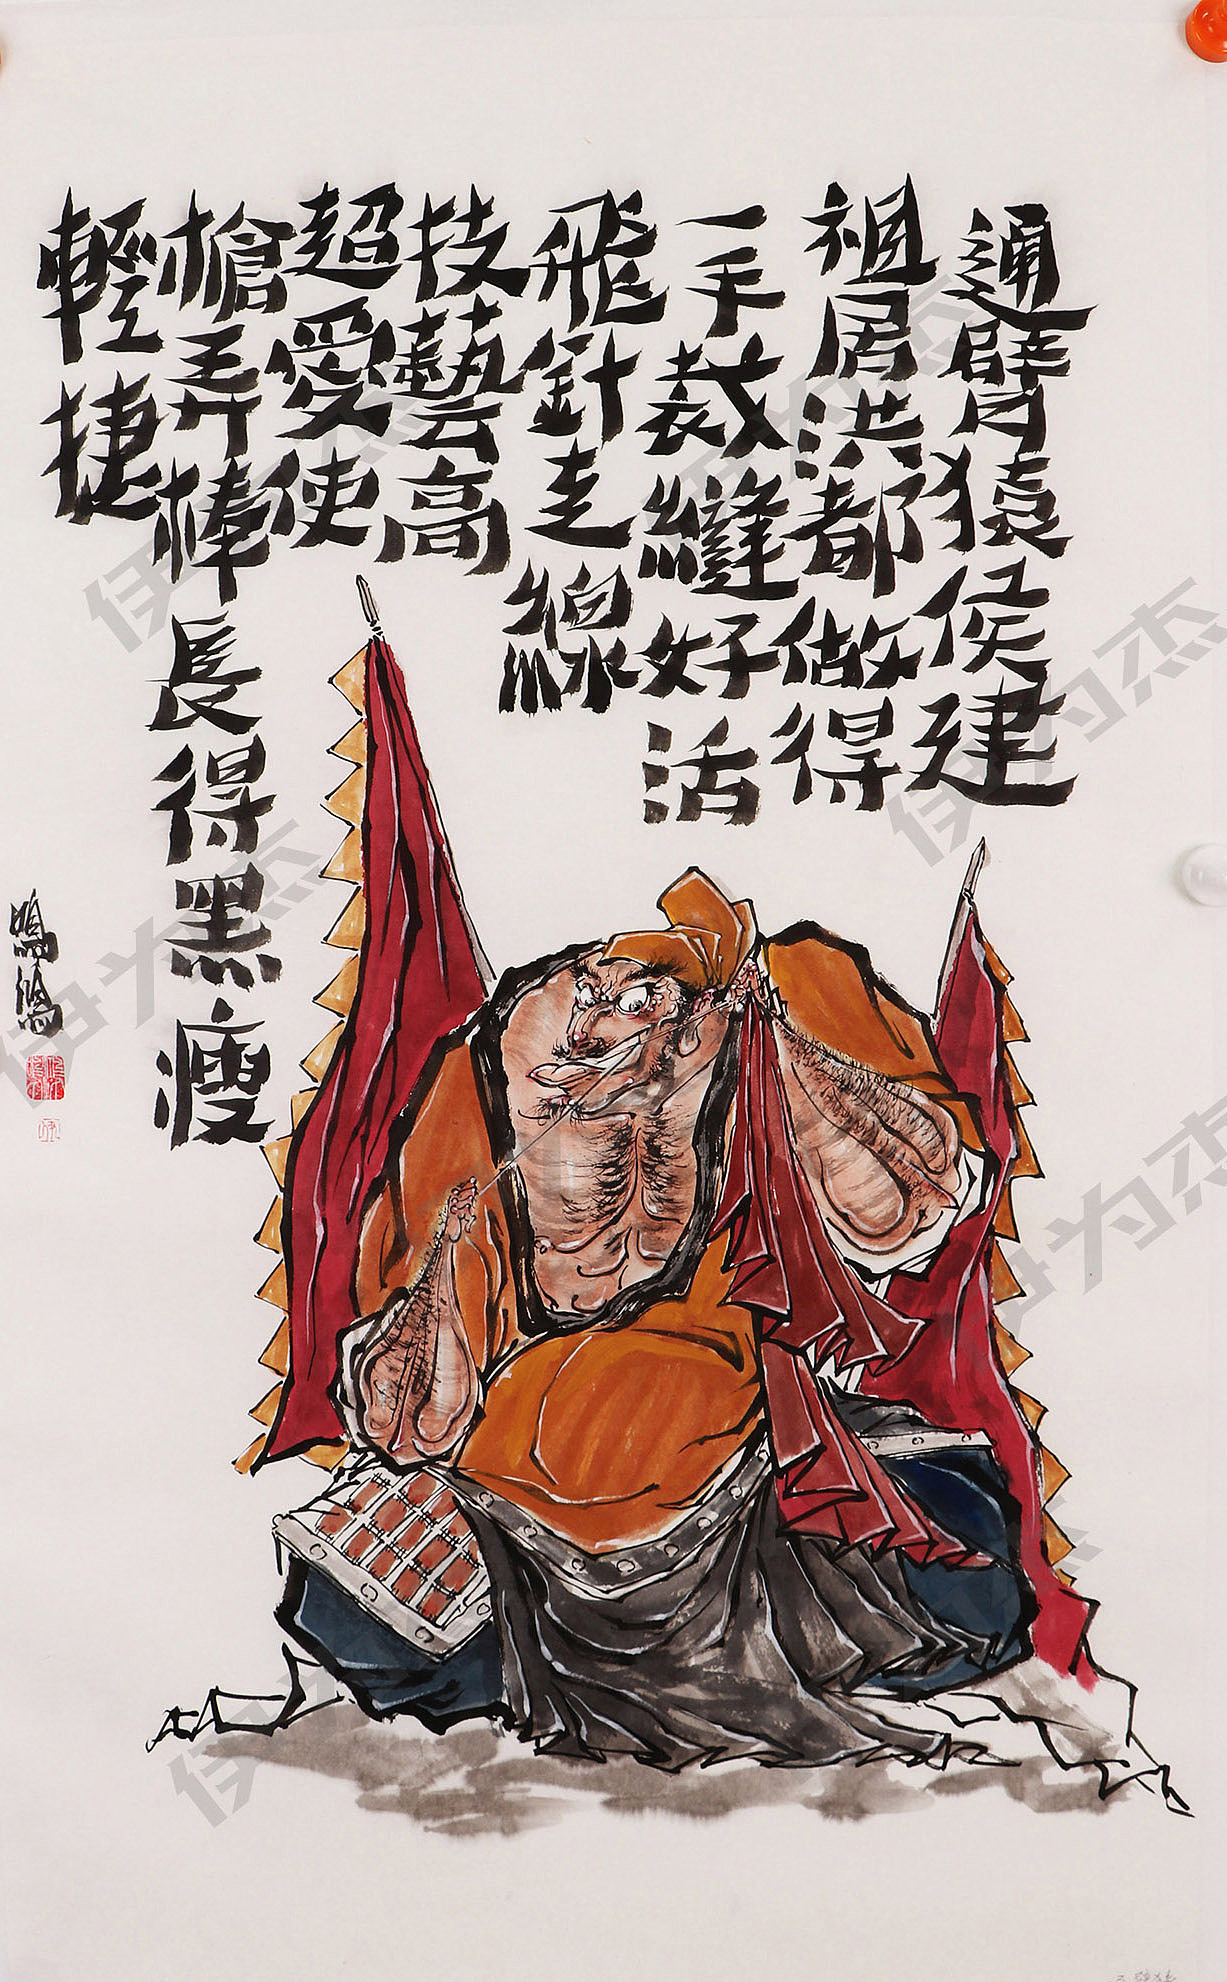 通臂猿侯建
祖居洪都做得
一手裁縫好活
飛針走線
技藝高
超愛使
槍弄棒長得黑瘦
輕捷
伊为杰
伊为杰
伊为杰
伊为杰
伊为杰
伊为杰
伊为杰
伊为杰